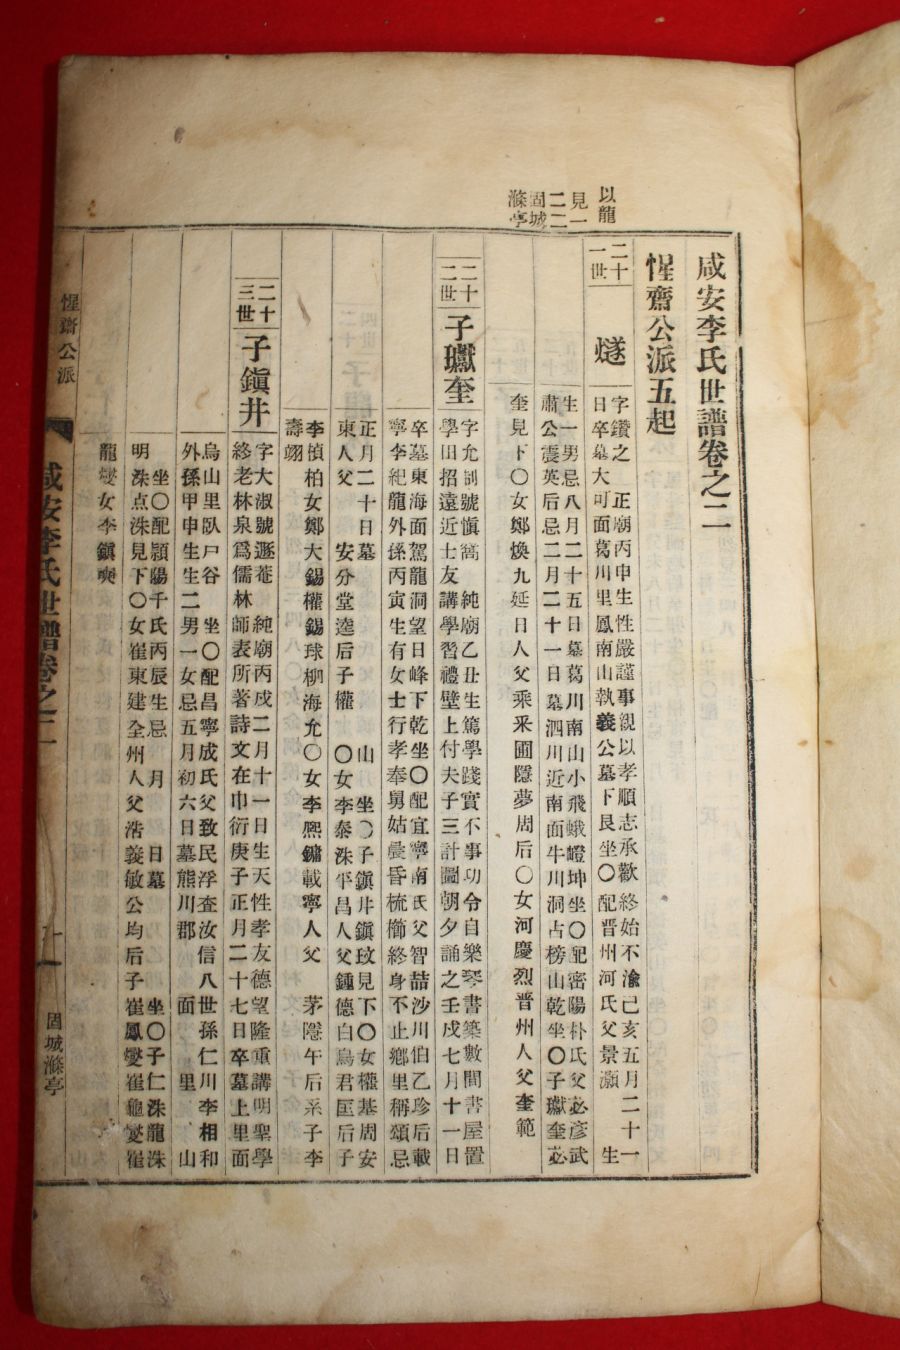 以龍
見一
二二
固城
滌亭
咸安李氏世譜卷之二
惺齋公派五起
二十
一世
燧
字鑽之 正廟丙申生性嚴謹事親以孝順志承歡終始不渝己亥五月二十一
日卒墓大可面葛川里鳳南山執義公墓下艮坐〇配晋州河氏父景灝 生
生一男忌八月二十五日墓葛川南山小飛蛾嶝坤坐〇配密陽朴氏父必彦武
肅公震英后忌二月二十一日墓泗川近南面牛川洞占榜山乾坐〇子瓛奎必
奎見下〇女鄭煥九延日人父乘釆圃隱夢周后〇女河慶烈晋州人父奎範
二十
二世
子瓛奎
字允剖號愼窩 純廟乙丑生篤學踐實不事功令自樂琴書築數間書屋置
學田招遠近士友講學習禮壁上付夫子三計圖朝夕誦之壬戌七月十一日
卒墓東海面駕龍洞望日峰下乾坐〇配宜寧南氏父智喆沙川伯乙珍后載
寧李紀龍外孫丙寅生有女士行孝奉舅姑晨昏梳櫛終身不止鄕里稱頌忌
正月二十日墓 山 坐〇子鎭井鎭玟見下〇女權基周安
東人父 安分堂逵后子權 〇女李泰洙平昌人父鍾德白烏君匡后子
李楨柏女鄭大錫權錫球柳海允〇女李熙鏞載寧人父 茅隱午后系子李
壽翊
二十
三世
子鎭井
字大淑號遯菴 純廟丙戌二月十一日生天性孝友德望隆重講明聖學
終老林泉爲儒林師表所著詩文在巾衍庚子正月二十七日卒墓上里面
烏山里臥尸谷 坐〇配昌寧成氏父致民浮査汝信八世孫仁川李相和
外孫甲申生生二男一女忌五月初六日墓熊川郡 面 里 山
坐〇配潁陽千氏丙辰生忌 月 日墓 坐〇子仁洙龍洙
明洙点洙見下〇女崔東建全州人父浩義敏公均后子崔鳳燮崔龜燮崔
龍燮女李鎭奭
惺齋公派
咸安李氏世譜卷之二
一
固城滌亭